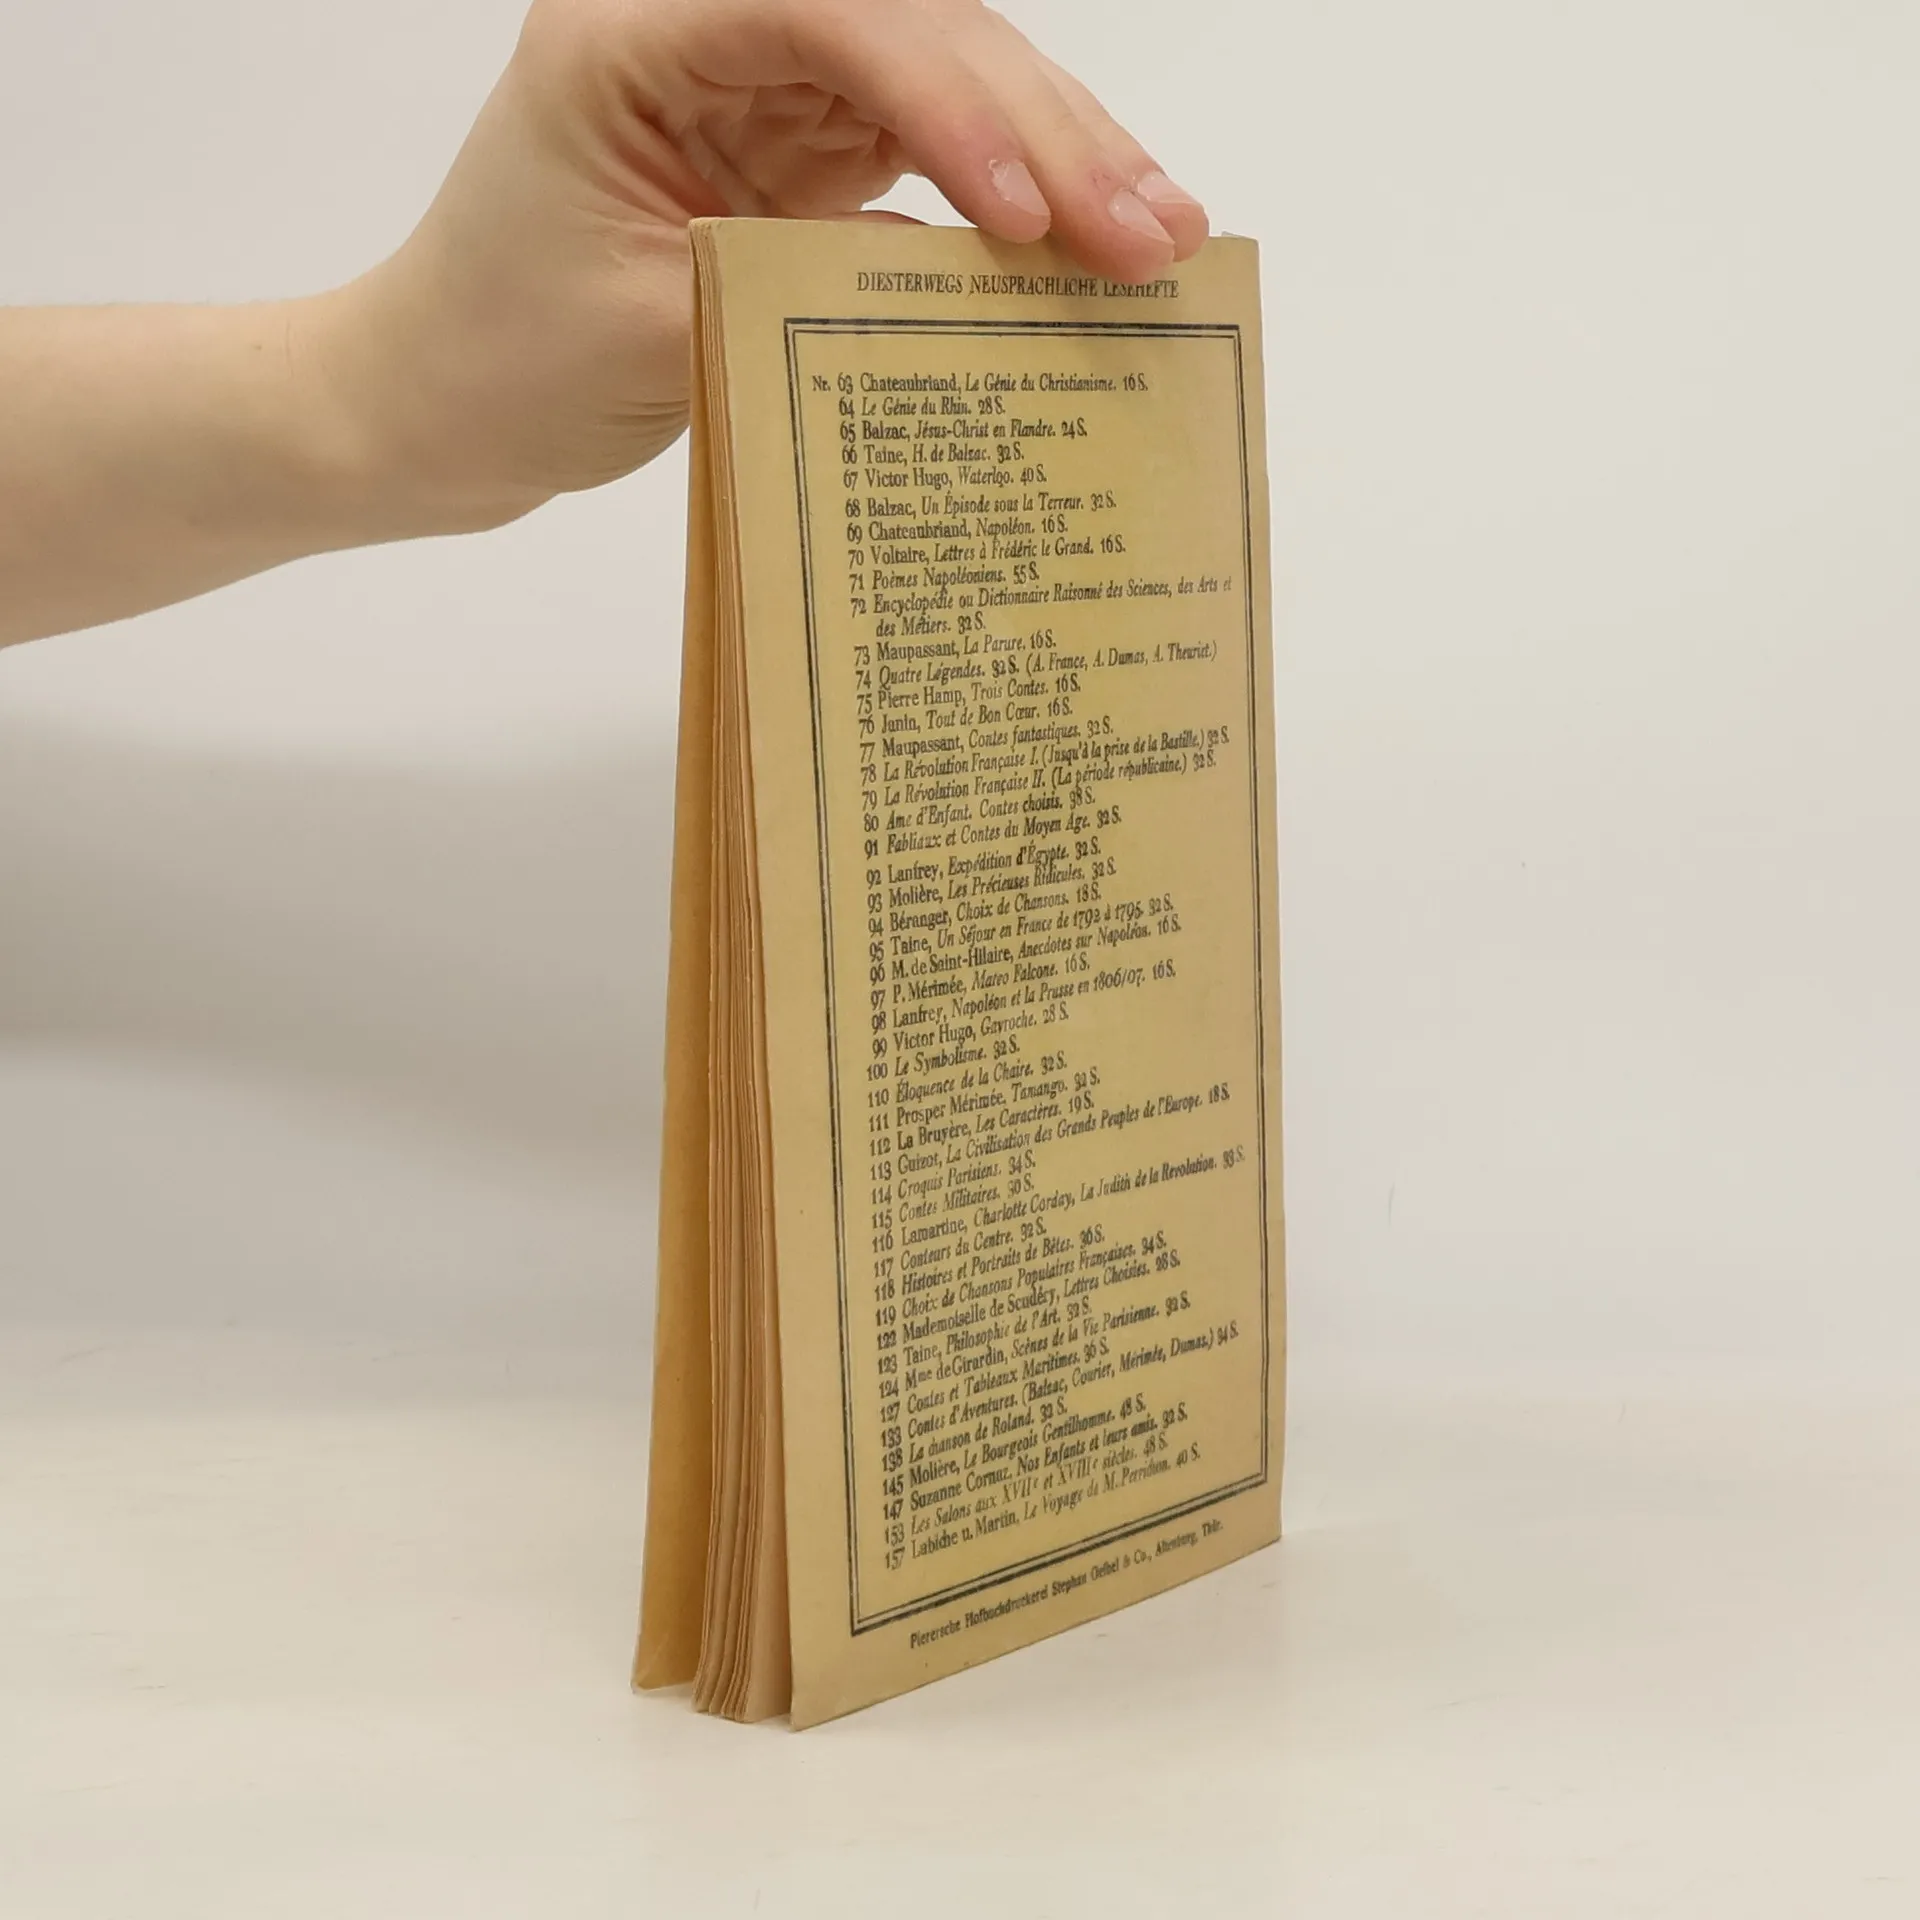 DIESTERWEGS NEUSPRACHLICHE LESEHEFTE
Nr. 63 Chateaubriand, Le Génie du Christianisme. 16 S.
64 Le Génie du Rhin. 28 S.
65 Balzac, Jésus-Christ en Flandre. 24 S.
66 Taine, H. de Balzac. 32 S.
67 Victor Hugo, Waterloo. 40 S.
68 Balzac, Un Épisode sous la Terreur. 32 S.
69 Chateaubriand, Napoléon. 16 S.
70 Voltaire, Lettres à Frédéric le Grand. 16 S.
71 Poèmes Napoléoniens. 55 S.
72 Encyclopédie ou Dictionnaire Raisonné des Sciences, des Arts et
des Métiers. 32 S.
73 Maupassant, La Parure. 16 S.
74 Quatre Légendes. 32 S. (A. France, A. Dumas, A. Theuriet.)
75 Pierre Hamp, Trois Contes. 16 S.
76 Janin, Tout de Bon Cœur. 16 S.
77 Maupassant, Contes fantastiques. 32 S.
78 La Révolution Française I. (Jusqu'à la prise de la Bastille.) 32 S.
79 La Révolution Française II. (La période républicaine.) 32 S.
80 Ame d'Enfant. Contes choisis. 38 S.
91 Fabliaux et Contes du Moyen Age. 32 S.
92 Lanfrey, Expédition d'Égypte. 32 S.
93 Molière, Les Précieuses Ridicules. 32 S.
94 Béranger, Choix de Chansons. 18 S.
95 Taine, Un Séjour en France de 1792 à 1795. 32 S.
96 M. de Saint-Hilaire, Anecdotes sur Napoléon. 16 S.
97 P. Mérimée, Mateo Falcone. 16 S.
98 Lanfrey, Napoléon et la Prusse en 1806/07. 16 S.
99 Victor Hugo, Gavroche. 28 S.
100 Le Symbolisme. 32 S.
110 Éloquence de la Chaire. 32 S.
111 Prosper Mérimée, Tamango. 32 S.
112 La Bruyère, Les Caractères. 19 S.
113 Guizot, La Civilisation des Grands Peuples de l'Europe. 18 S.
114 Croquis Parisiens. 34 S.
115 Contes Militaires. 30 S.
116 Lamartine, Charlotte Corday, La Judith de la Revolution. 33 S.
117 Conteurs du Centre. 32 S.
118 Histoires et Portraits de Bêtes. 36 S.
119 Choix de Chansons Populaires Françaises. 34 S.
122 Mademoiselle de Scudéry, Lettres Choisies. 28 S.
123 Taine, Philosophie de l'Art. 32 S.
124 Mme de Girardin, Scènes de la Vie Parisienne. 32 S.
127 Contes et Tableaux Maritimes. 36 S.
133 Contes d'Aventures. (Balzac, Courier, Mérimée, Dumas.) 34 S.
138 La chanson de Roland. 32 S.
145 Molière, Le Bourgeois Gentilhomme. 48 S.
147 Suzanne Cornaz, Nos Enfants et leurs amis. 32 S.
153 Les Salons aux XVIIe et XVIIIe siècles. 48 S.
157 Labiche u. Martin, Le Voyage de M. Perrichon. 40 S.
Pierersche Hofbuchdruckerei Stephan Geibel & Co., Altenburg, Thür.